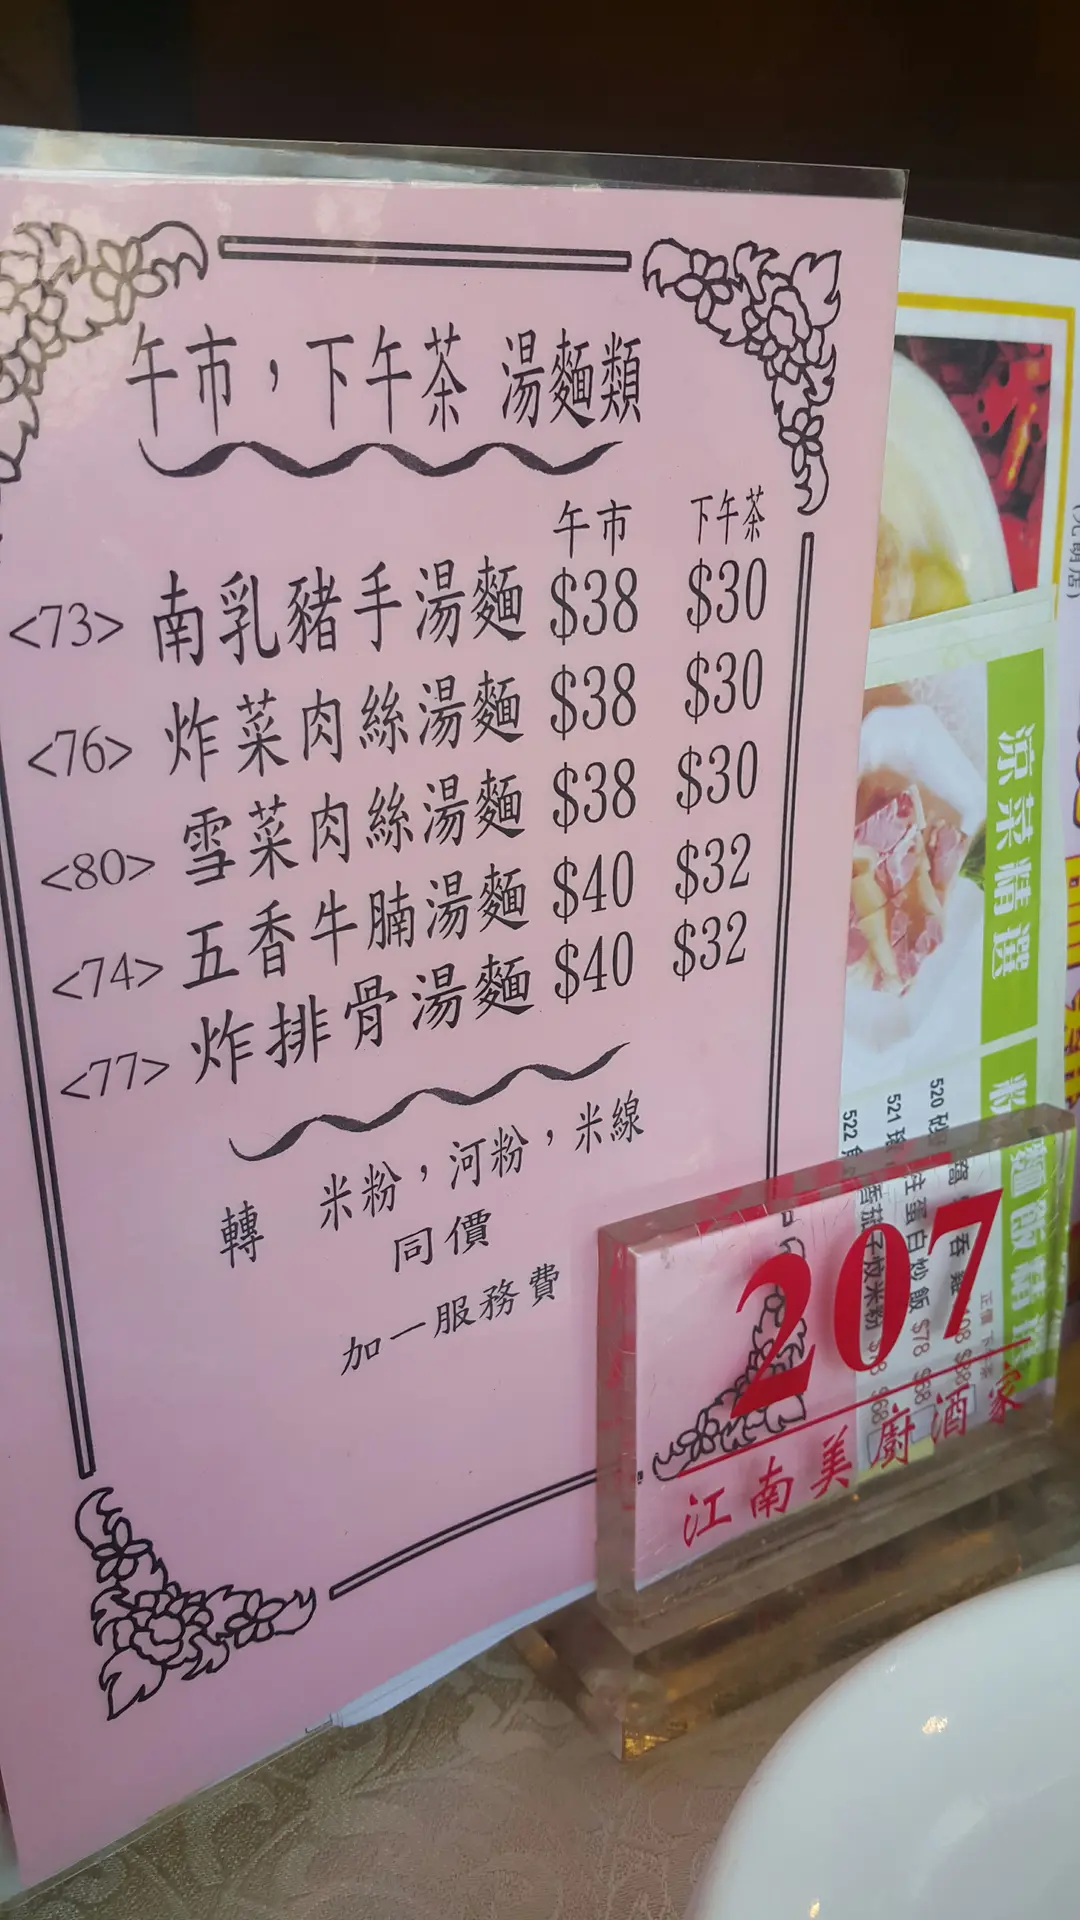 午市，下午茶 湯麵類
午市 下午茶
<73> 南乳豬手湯麵 $38 $30
<76> 炸菜肉絲湯麵 $38 $30
<80> 雪菜肉絲湯麵 $38 $30
<74> 五香牛腩湯麵 $40 $32
<77> 炸排骨湯麵 $40 $32
轉 米粉，河粉，米線
同價
加一服務費
207
江南美廚酒家
涼菜精選
520
521
522